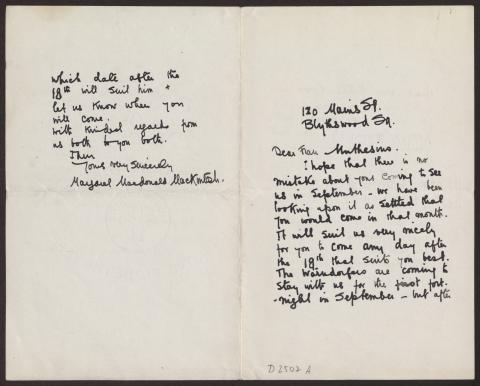 120 Mains St.
Blythswood Sq.
Dear Frau Muthesius.
I hope that there is no
mistake about your coming to see
us in September - we have been
looking upon it as settled that
you would come in that month.
It will suit us very nicely
for you to come any day after
the 18th that suits you best.
The Waerndorfers are coming to
stay with us for the first fort-
-night in September - but after
which date after the
18th will suit him +
let us know when you
will come.
With kindest regards from
us both to you both.
Yours very Sincerely
Margaret Macdonald Mackintosh.
D 2502 A